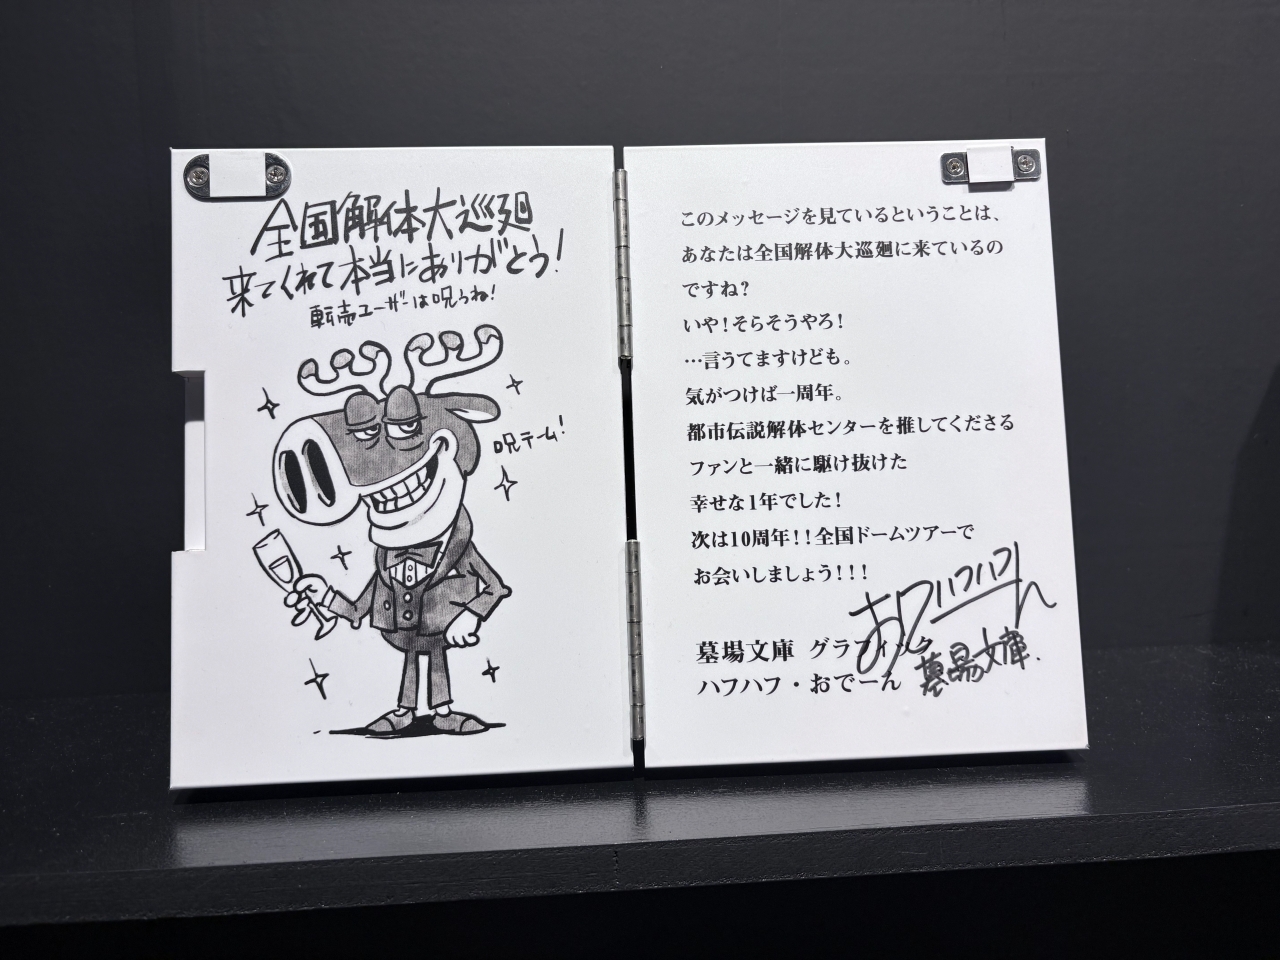 全国解体大巡廻
来てくれて本当にありがとう!
転売ユーザーは呪うね!
呪テーム!
このメッセージを見ているということは、
あなたは全国解体大巡廻に来ているの
ですね?
いや!そらそうやろ!
…言うてますけども。
気がつけば一周年。
都市伝説解体センターを推してくださる
ファンと一緒に駆け抜けた
幸せな1年でした!
次は10周年!!全国ドームツアーで
お会いしましょう!!!
墓場文庫 グラフィック
ハフハフ・おでーん
墓場文庫.